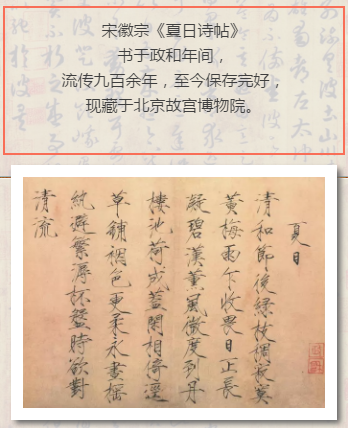 宋徽宗《夏日诗帖》
书于政和年间，
流传九百余年，至今保存完好，
现藏于北京故宫博物院。
夏日
清和節後綠枝稠寂寞
黃梅雨乍收畏日正長
凝碧漢薰風微度到丹
樓池荷成蓋閑相倚逕
草鋪裀色更柔永晝搖
紈避繁溽杯盤時欲對
清流